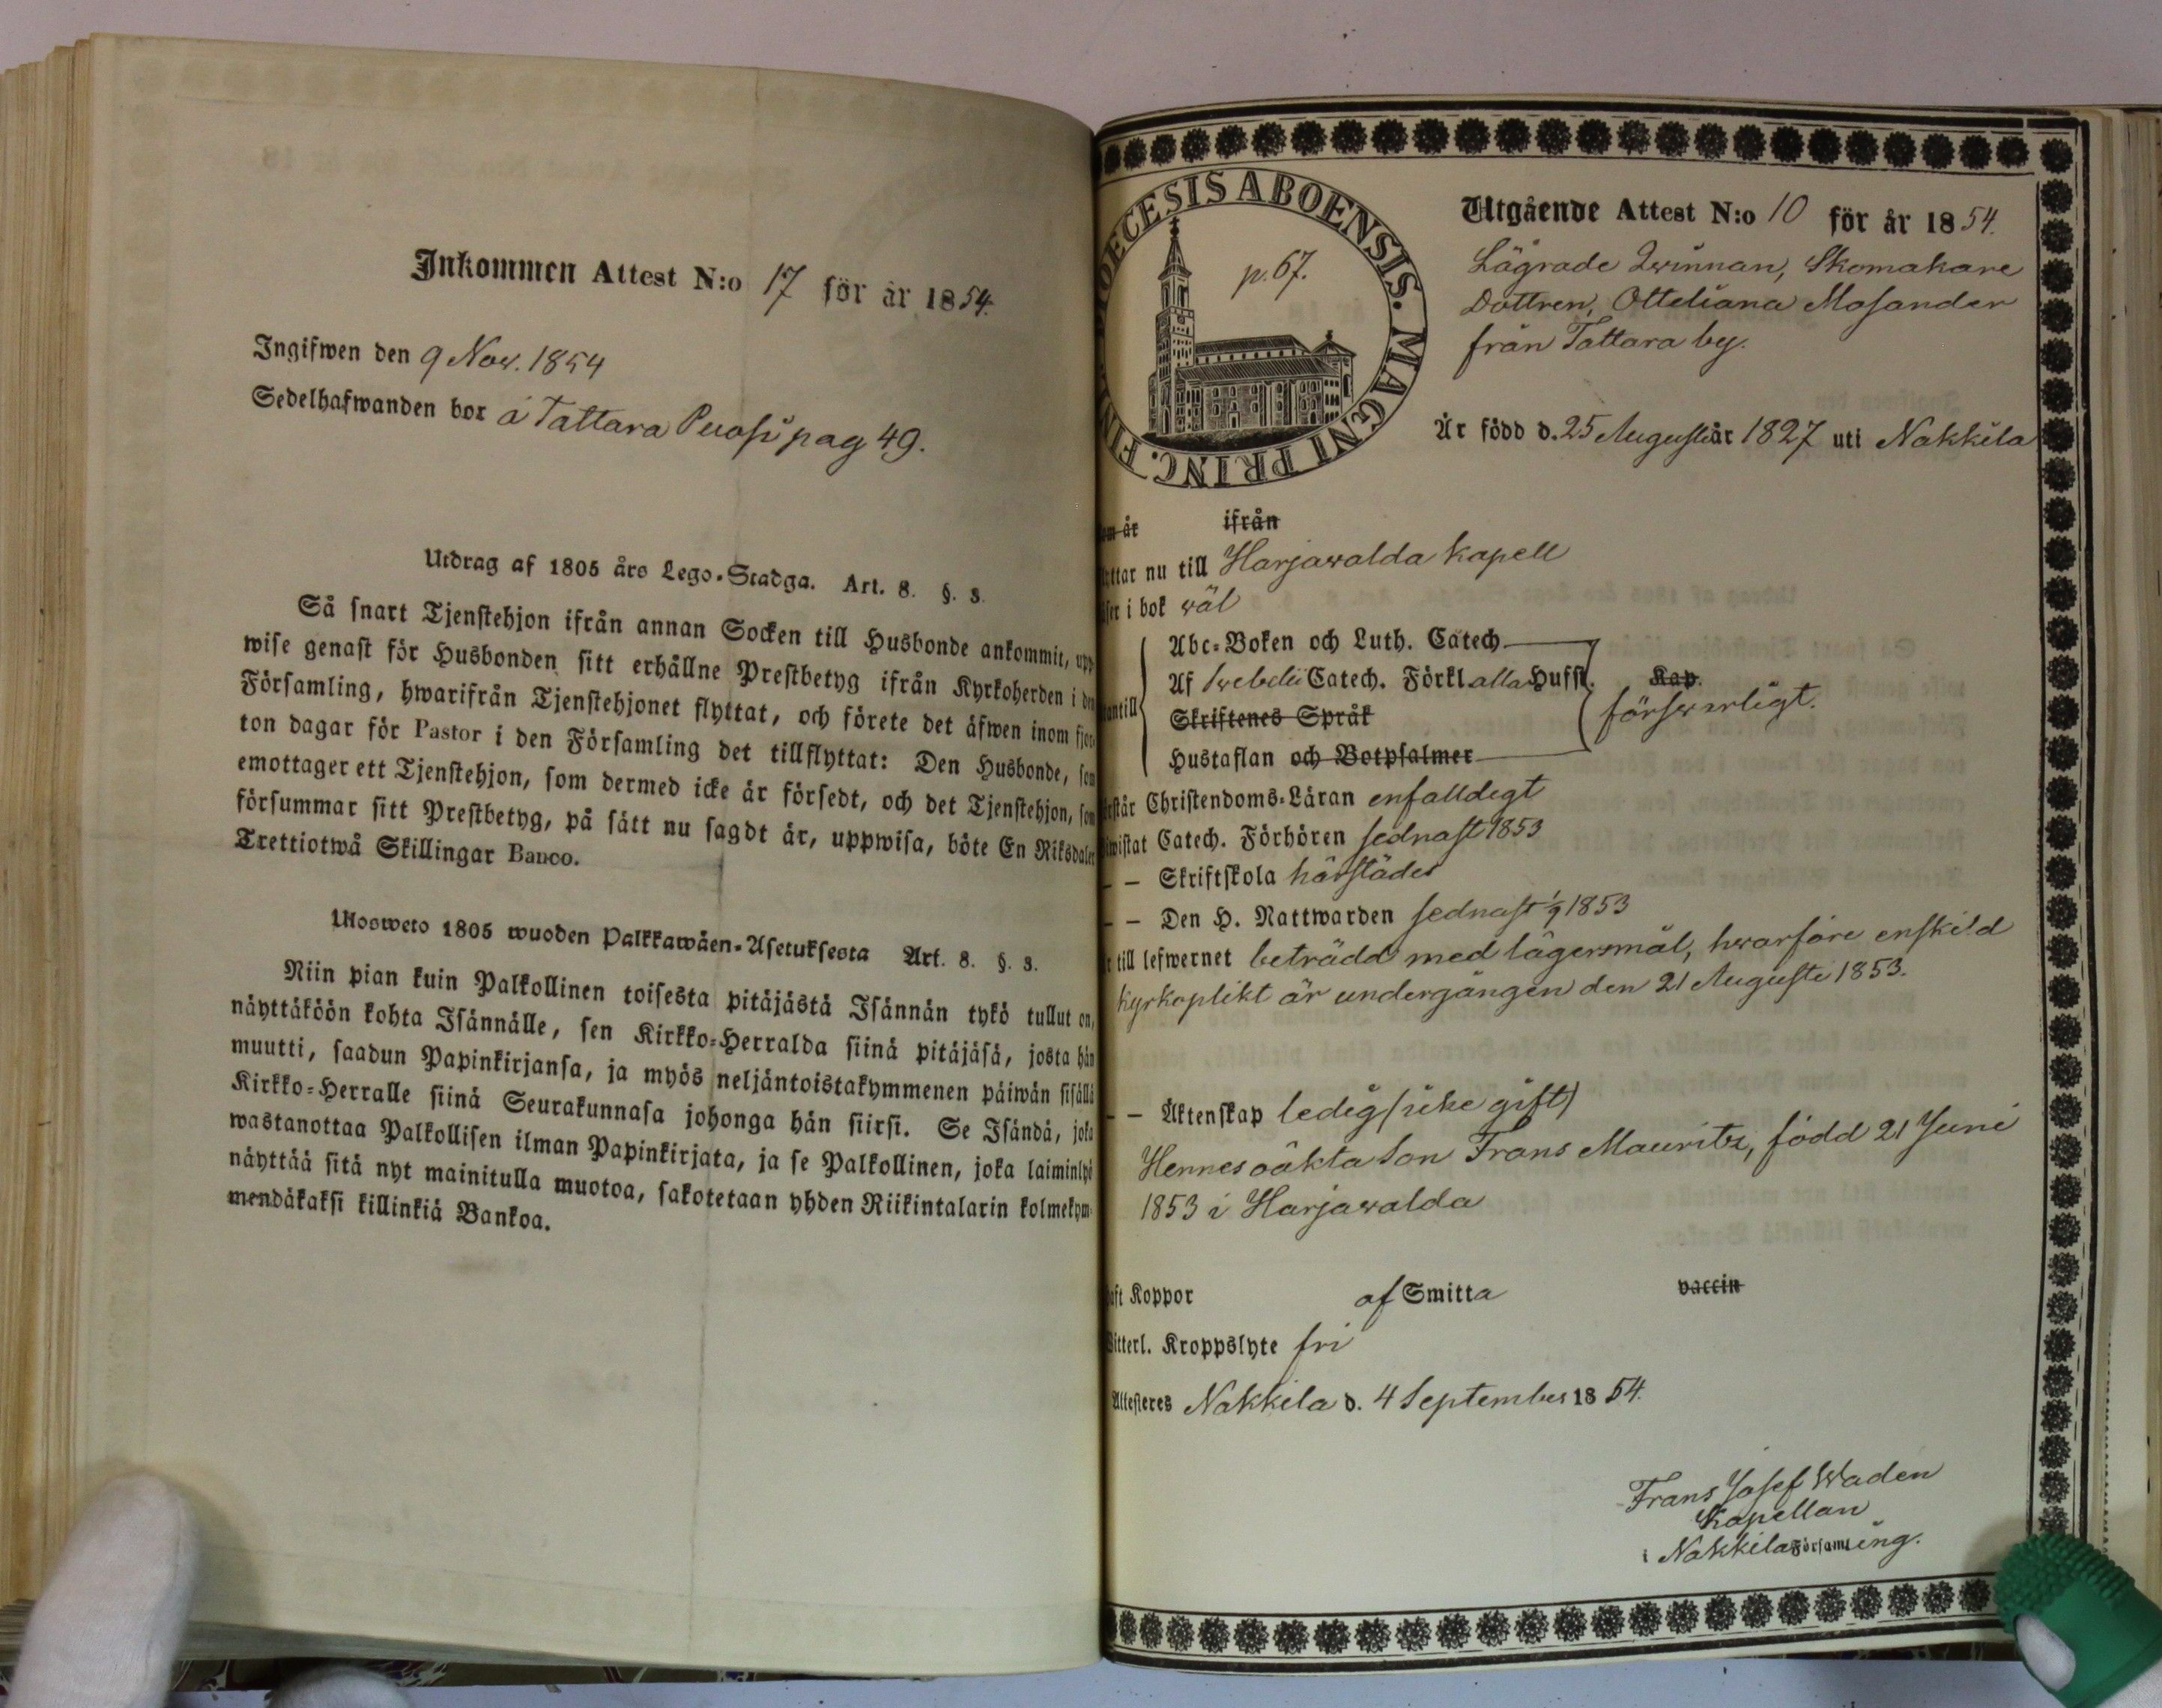 Inkommen Attest N:o 17 för år 1854.
Ingifwen den 9 Nov. 1854
Sedelhafwanden bor å Tattara Puosi pag 49.
Utdrag af 1805 års Lego-Stadga. Art. 8. §. 3.
Så snart Tjenstehjon ifrån annan Socken till Husbonde ankommit, upp-
wise genast för Husbonden sitt erhållne Prestbetyg ifrån Kyrkoherden i den
Församling, hwarifrån Tjenstehjonet flyttat, och förete det äfwen inom fjor-
ton dagar för Pastor i den Församling det tillflyttat: Den Husbonde, som
emottager ett Tjenstehjon, som dermed icke är försedt, och det Tjenstehjon, som
försummar sitt Prestbetyg, på sätt nu sagdt är, uppwisa, böte En Riksdaler
Trettiotwå Skillingar Banco.
Ulosweto 1805 wuoden Palkkawäen-Asetuksesta Art. 8. §. 3.
Niin pian kuin Palkollinen toisesta pitäjästä Isännän tykö tullut on,
näyttäköön kohta Isännälle, sen Kirkko-Herralda siinä pitäjäsä, josta hän
muutti, saadun Papinkirjansa, ja myös neljäntoistakymmenen päiwän sisällä
Kirkko-Herralle siinä Seurakunnasa johonga hän siirsi. Se Isändä, joka
wastanottaa Palkollisen ilman Papinkirjata, ja se Palkollinen, joka laiminlyö
näyttää sitä nyt mainitulla muotoa, sakotetaan yhden Riikintalarin kolmekym-
mendäkaksi killinkiä Bankoa.
DIOECESIS ABOENSIS. MAGNI PRINC. FIN
p. 67.
Utgående Attest N:o 10 för år 1854.
Lägrade Qwinnan, Skomakare
Dottren, Otteliana Mosander
från Tattara by.
Är född d. 25 Augusti år 1827 uti Nakkila
om år ifrån
yttar nu till Harjawalda kapell
äser i bok wäl
Abc-Boken och Luth. Catech
Af Swebelii Catech. Förkl. alla Hufst. Kap.
antill Skriftenes Språk försvarligt.
Hustaflan och Botpsalmer
rstår Christendoms-Läran enfalldigt
iwistat Catech. Förhören sednast 1853
– – Skriftskola härstädes
– – Den H. Nattwarden sednast 1/9 1853
r till lefwernet beträdd med lägersmål, hwarföre enskild
kyrkoplikt är undergången den 21 Augusti 1853.
– – Äktenskap ledig (icke gift)
Hennes oäkta Son Frans Mauritz, född 21 Juni
1853 i Harjawalda
aft Koppor af Smitta vaccin
Witterl. Kroppslyte fri
Attesteres Nakkila d. 4 September 1854.
Frans Josef Waden
Kapellan
i Nakkila Församling.